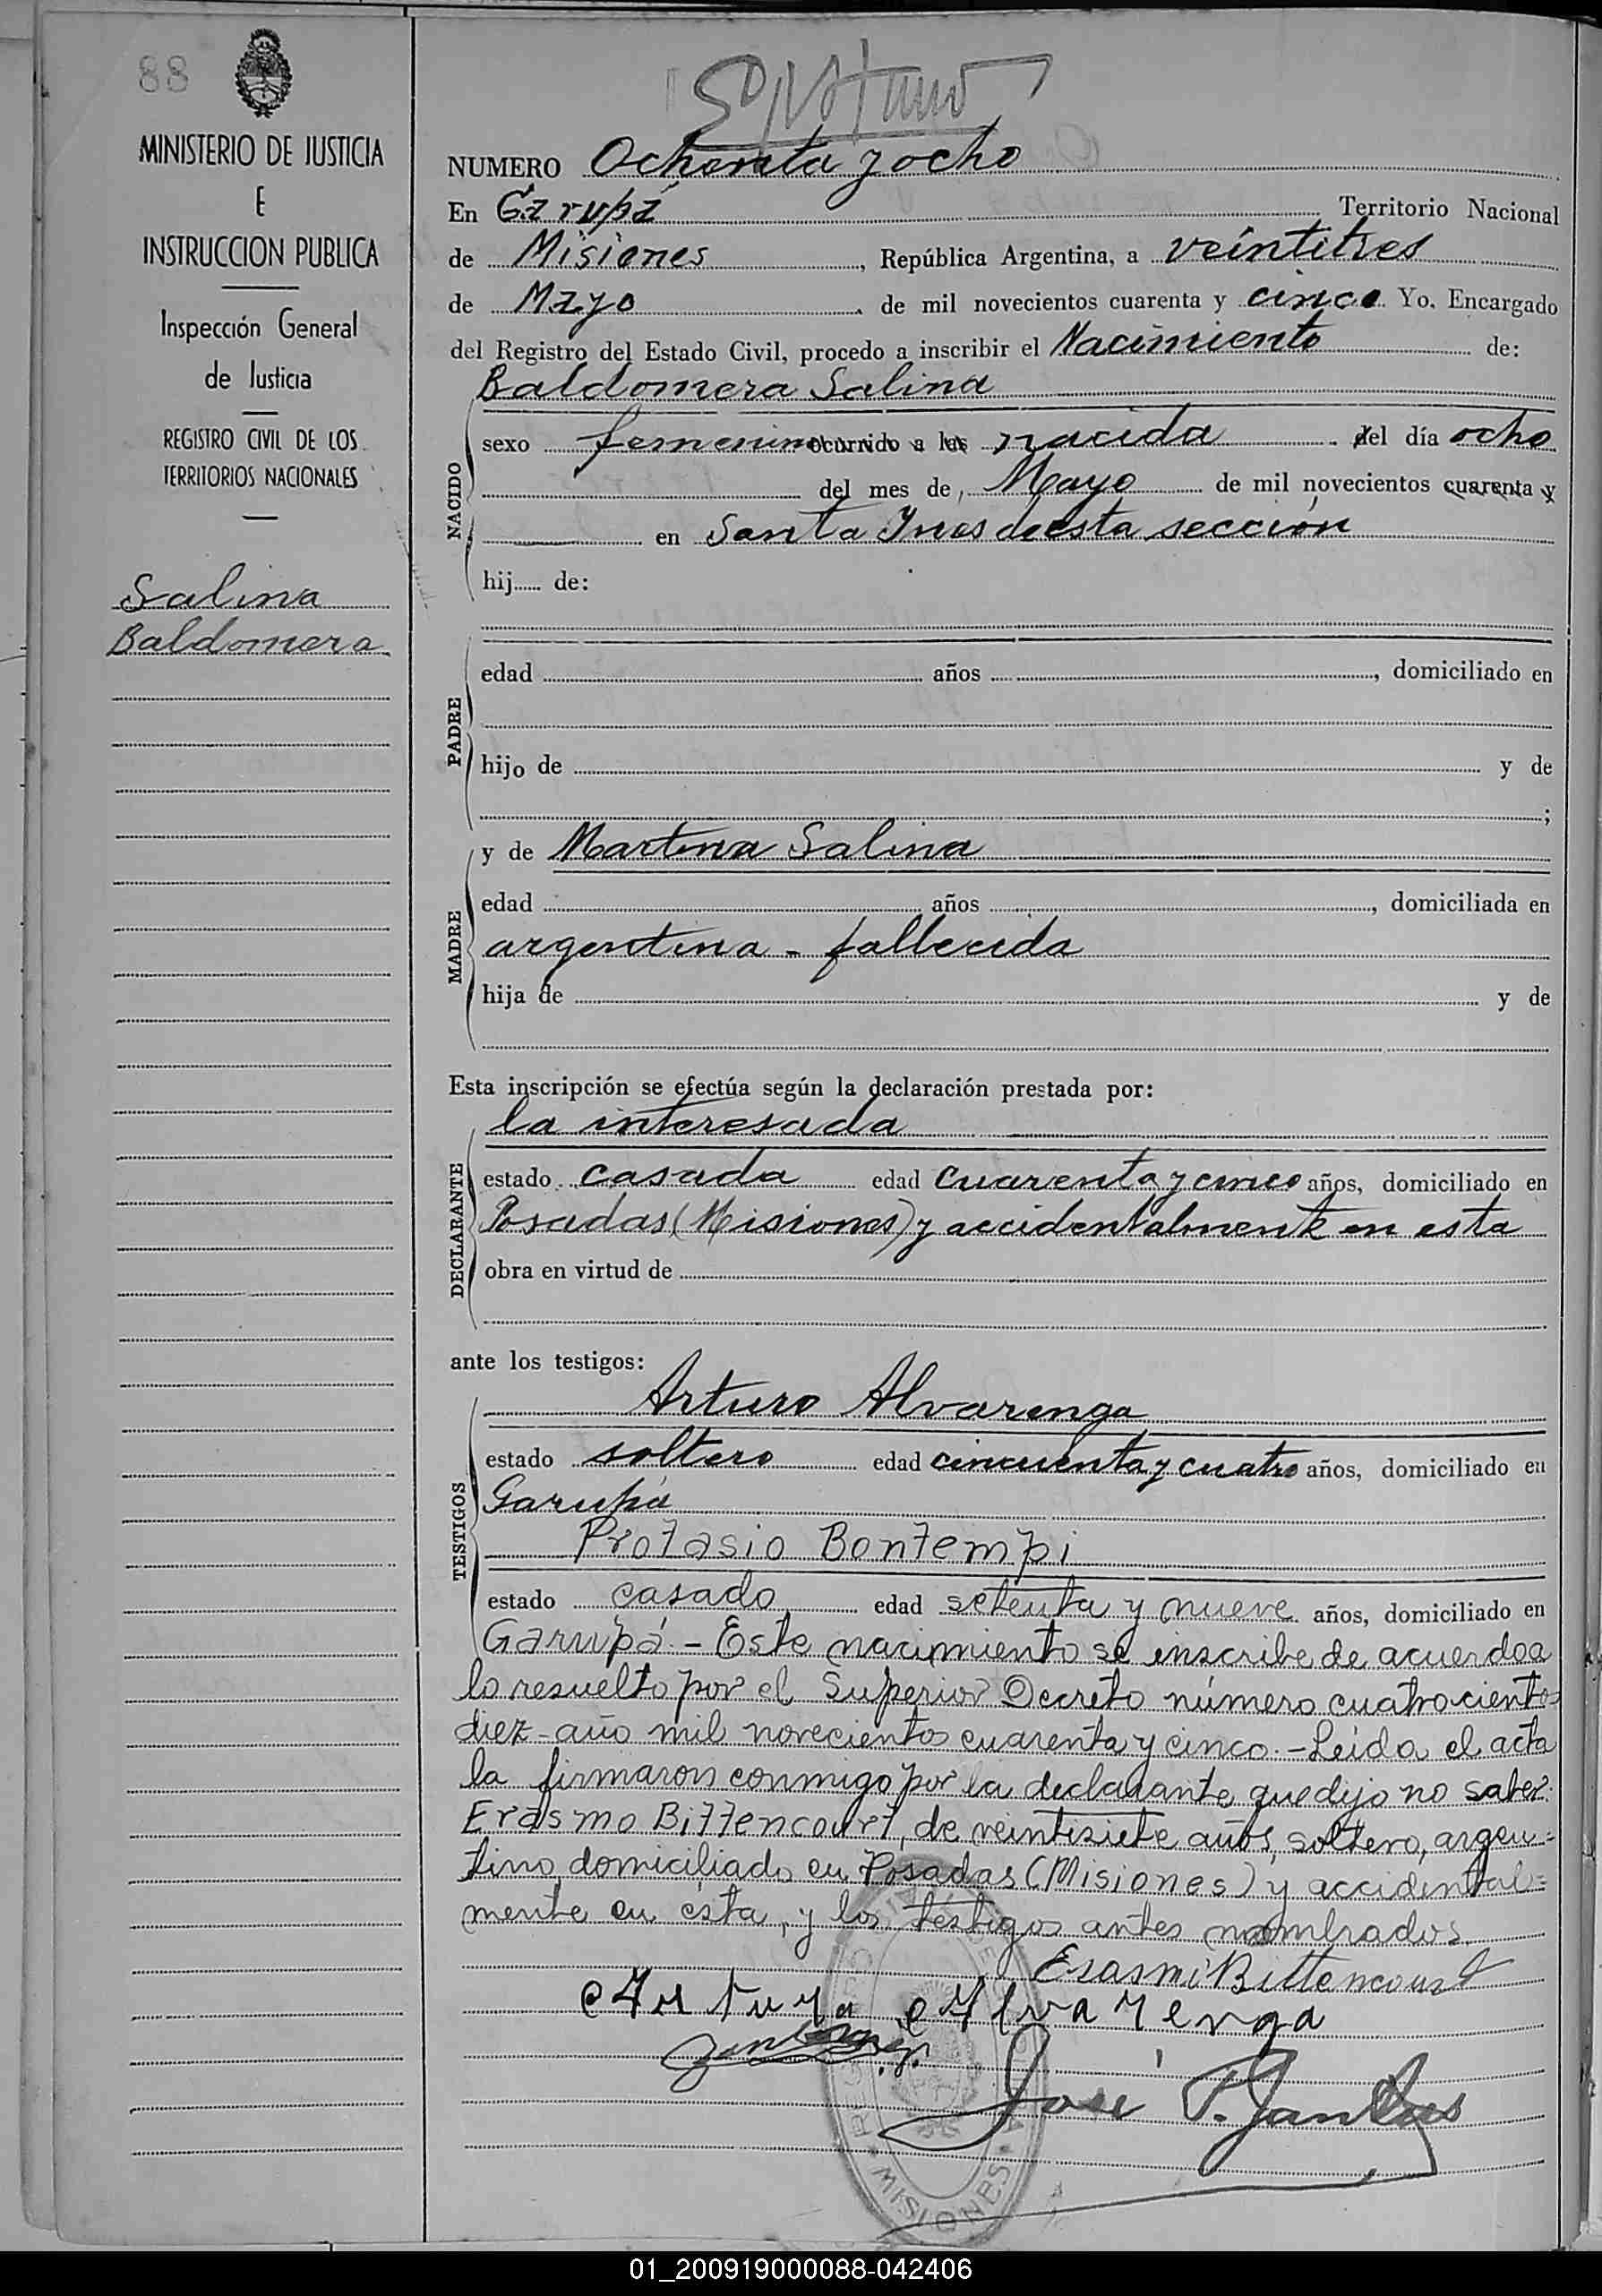 88
MINISTERIO DE JUSTICIA
E
INSTRUCCION PUBLICA
Inspección General
de Justicia
REGISTRO CIVIL DE LOS
TERRITORIOS NACIONALES
Salina
Baldomera
NUMERO Ochenta y ocho
En Garupá Territorio Nacional
de Misiones, República Argentina, a veintitres
de Mayo de mil novecientos cuarenta y cinco Yo, Encargado
del Registro del Estado Civil, procedo a inscribir el Nacimiento de:
Baldomera Salina
NACIDO
sexo femenino ocurrido a las nacida del día ocho
del mes de, Mayo de mil novecientos cuarenta y
en Santa Ines de esta sección
hij...... de:
PADRE
edad años , domiciliado en
hijo de y de
;
MADRE
y de Martina Salina
edad años , domiciliada en
argentina - fallecida
hija de y de
Esta inscripción se efectúa según la declaración prestada por:
DECLARANTE
la interesada
estado casada edad cuarenta y cinco años, domiciliado en
Posadas (Misiones) y accidentalmente en esta
obra en virtud de
ante los testigos:
TESTIGOS
Arturo Alvarenga
estado soltero edad cincuenta y cuatro años, domiciliado en
Garupá
Protasio Bontempi
estado casado edad setenta y nueve años, domiciliado en
Garupá.- Este nacimiento se inscribe de acuerdo a
lo resuelto por el Superior Decreto número cuatrocientos
diez - año mil novecientos cuarenta y cinco.- Leída el acta
la firmaron conmigo por la declarante que dijo no saber
Erasmo Bittencourt, de veintisiete años, soltero, argen=
tino, domiciliado en Posadas (Misiones) y accidental=
mente en ésta, y los testigos antes nombrados.
Erasmo Bittencourt
Arturo Alvarenga
José
MISIONES
01_200919000088-042406